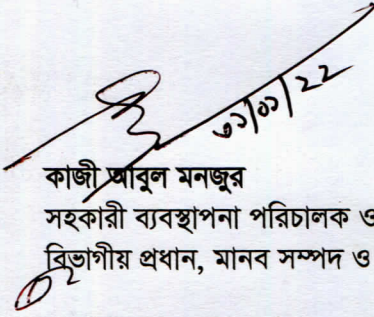 ৩১/০১/২২
কাজী আবুল মনজুর
সহকারী ব্যবস্থাপনা পরিচালক ও
বিভাগীয় প্রধান, মানব সম্পদ ও